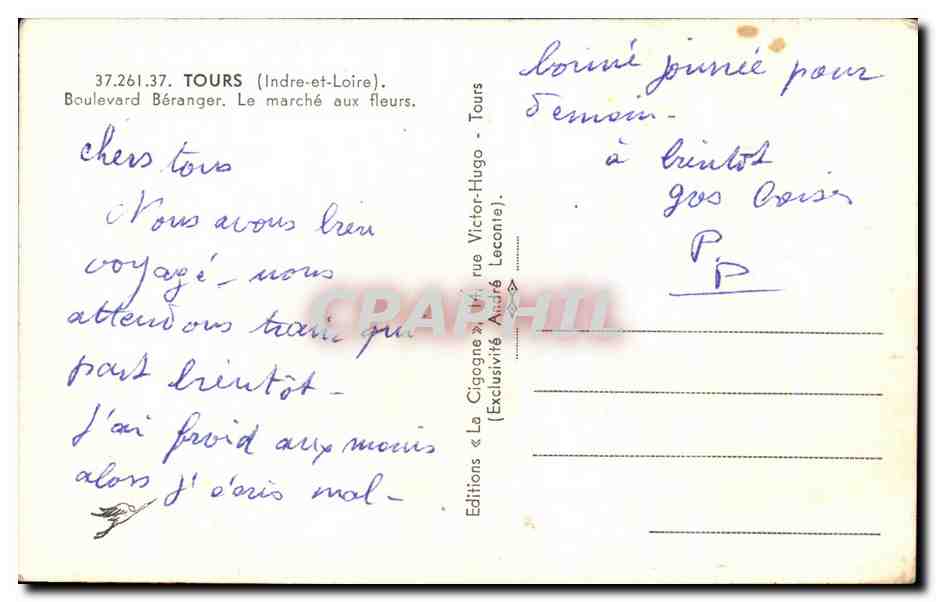 37.261.37. TOURS (Indre-et-Loire).
Boulevard Béranger. Le marché aux fleurs.
chers tous
Nous avons bien
voyagé - nous
attendons train qui
part bientôt -
J'ai froid aux mains
alors j'écris mal -
Editions « La Cigogne », rue Victor-Hugo - Tours
(Exclusivité André Leconte).
bonne journée pour
demain -
à bientôt
gros baisers
P.P
CPARPHIL